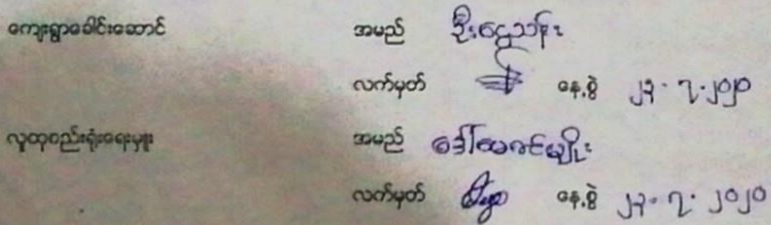 ကျေးရွာခေါင်းဆောင် အမည် ဦးငွေသန်း
လက်မှတ် နေ့စွဲ ၂၃.၇.၂၀၂၀
လူထုစည်းရုံးရေးမှူး အမည် ဒေါ်ထင်မျိုး
လက်မှတ် နေ့စွဲ ၂၃.၇.၂၀၂၀